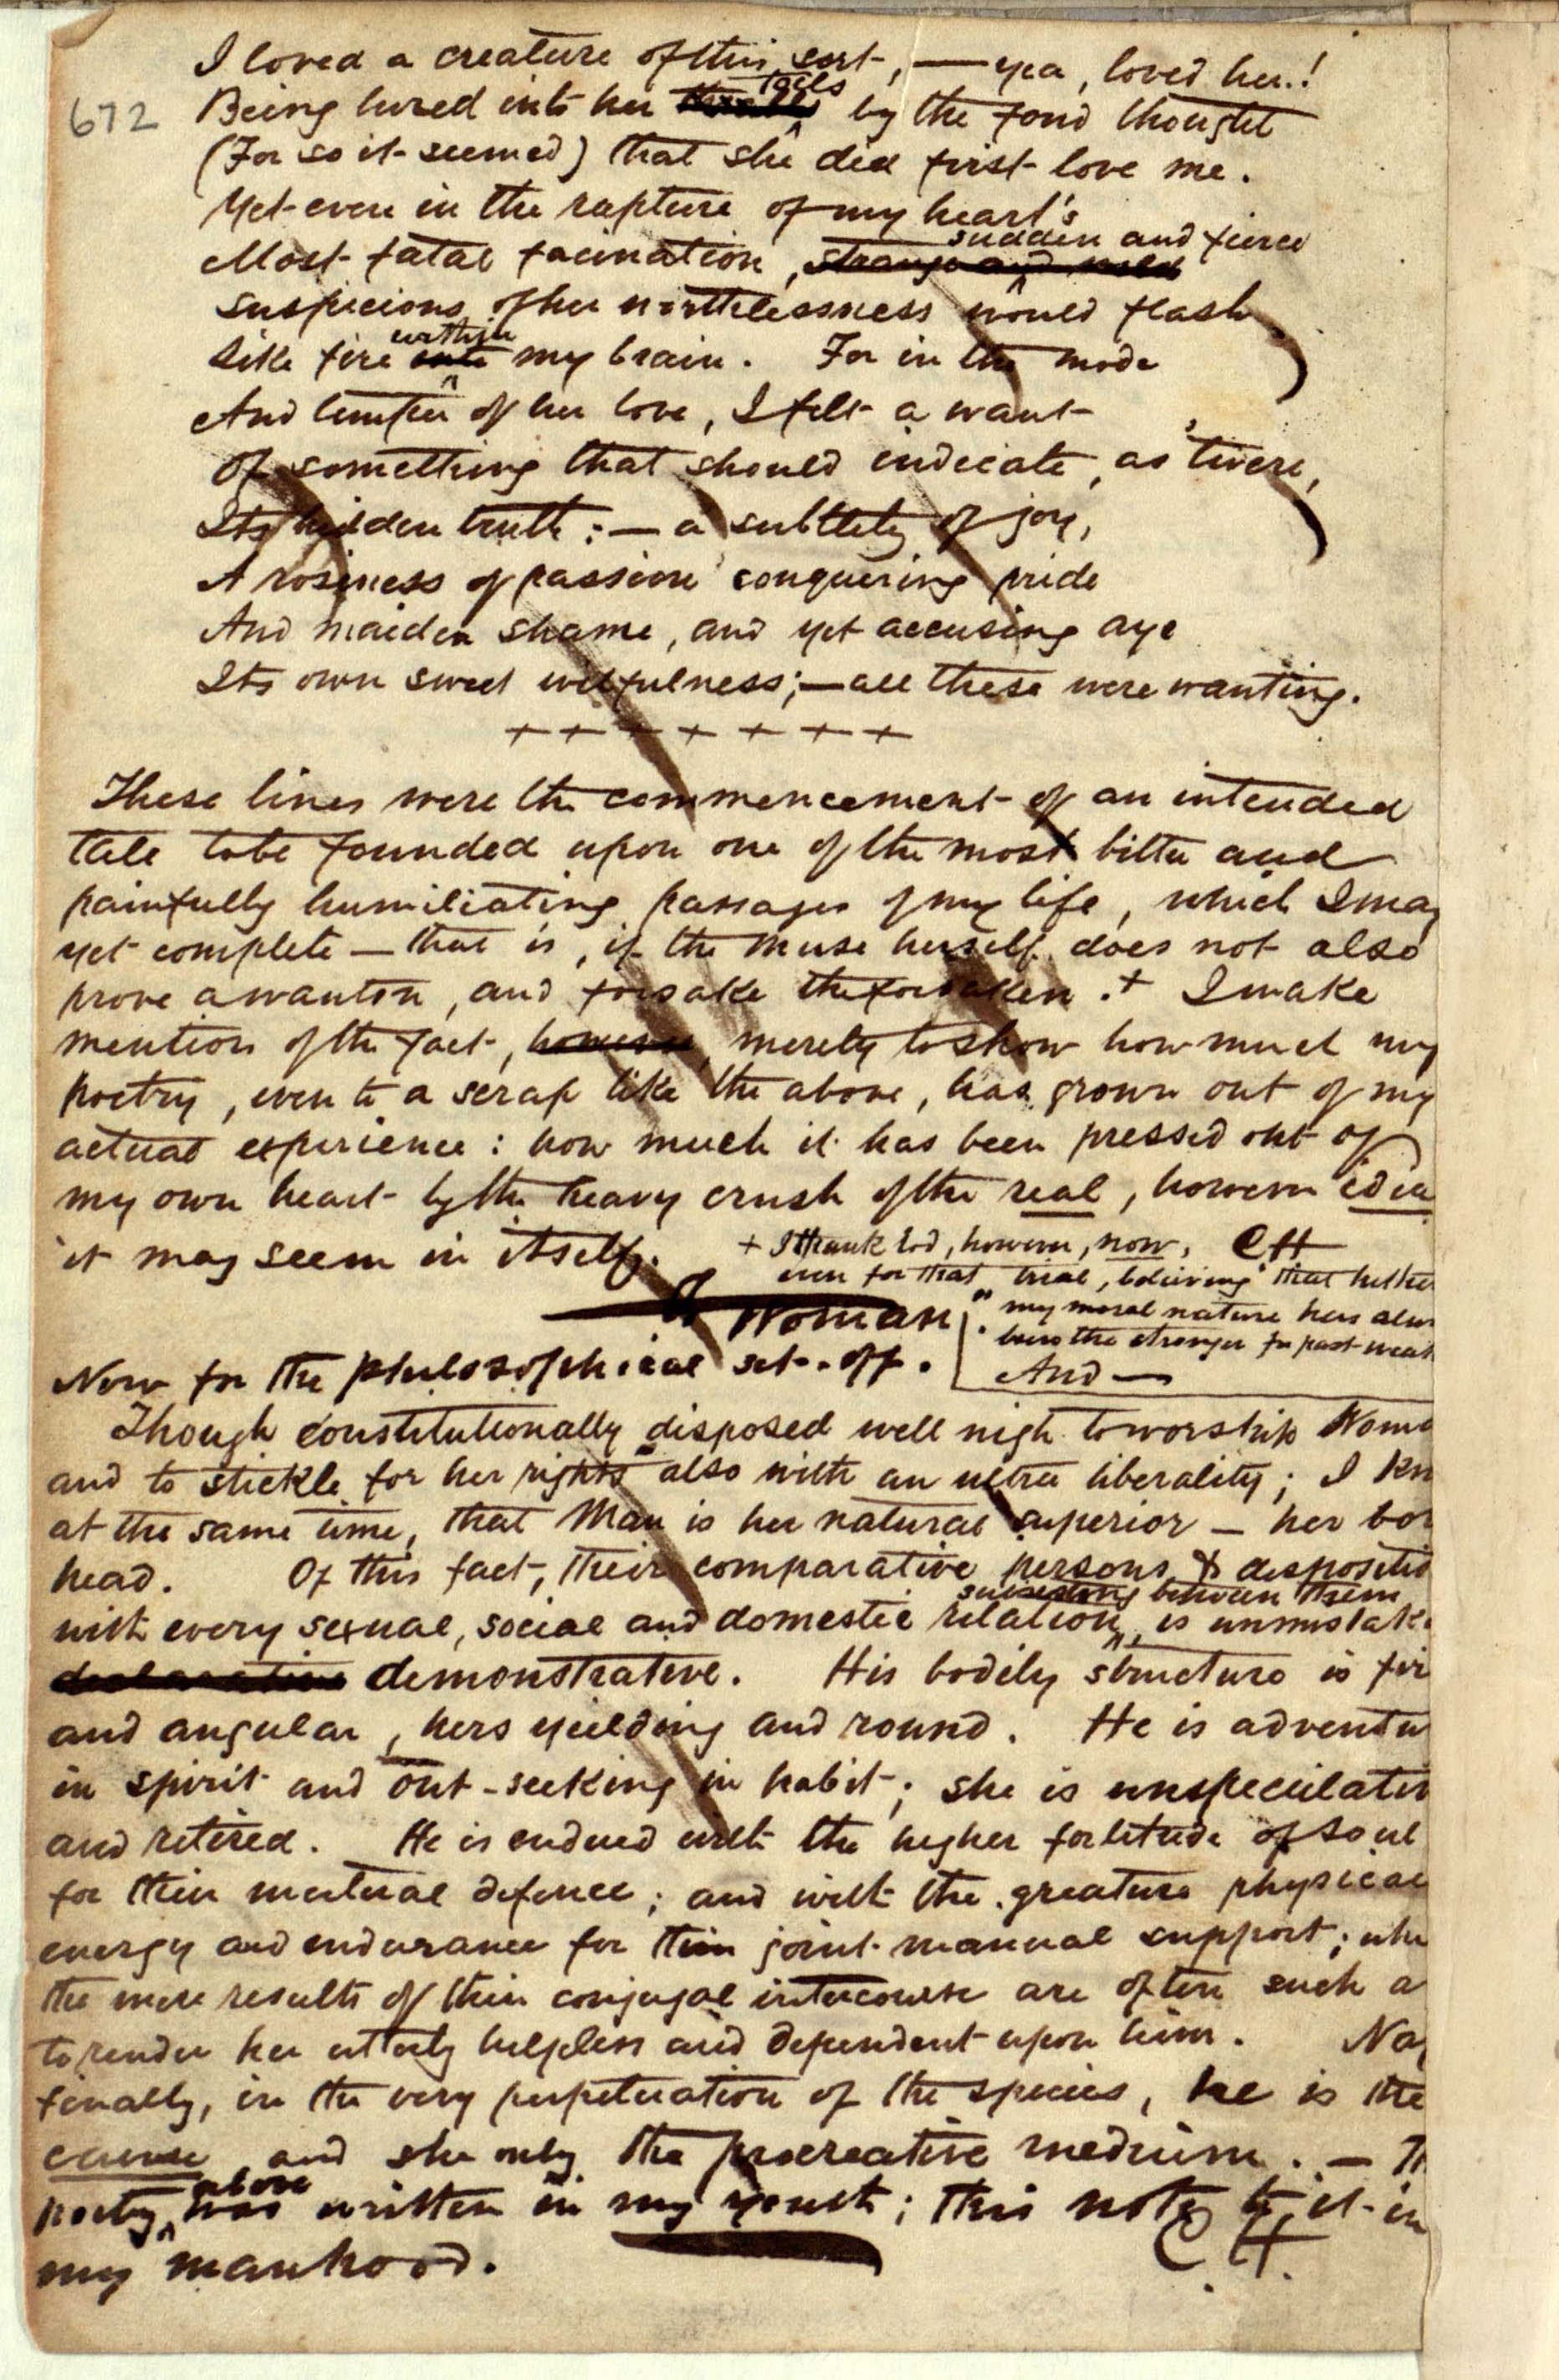 I loved a creature of this sort, — yea, loved her!
672
Being lured into her toils by the fond thought
(For so it seemed) that she did first love me.
Yet even in the rapture of my heart's
Most fatal facination, sudden and fierce
suspicions of her worthlessness would flash
Like fire within my brain. For in the mode
And temper of her love, I felt a want
Of something that should indicate, as 'twere,
Its hidden truth: — a subtlety of joy,
A rosiness of passion conquering pride
And maiden shame, and yet accusing aye
Its own sweet wilfulness; — all these were wanting.
+ + + + + + +
These lines were the commencement of an intended
tale to be founded upon one of the most bitter and
painfully humiliating passages of my life, which I may
yet complete — that is, if the muse herself does not also
prove a wanton, and forsake the forsaken.+ I make
mention of the fact, however, merely to show how much my
poetry, even to a scrap like the above, has grown out of my
actual experience: how much it has been pressed out of
my own heart by the heavy crush of the real, however idea
it may seem in itself. C.H
+ I thank God, however, now,
even for that trial, believing that
my moral nature has
been the stronger for past
And —
Woman
Now for the philosophical set-off.
Though constitutionally disposed well nigh to worship Woma
and to stickle for her rights also with an ultra liberality; I kn
at the same time, that Man is her natural superior — her bor
head. Of this fact, their comparative persons & dispositio
subsisting between them
with every sexual, social and domestic relation, is unmistake
declarative demonstrative. His bodily structure is fir
and angular, hers yielding and round. He is adventu
in spirit and out-seeking in habit; she is unspeculativ
and retired. He is endued with the higher fortitude of soul
for their mutual defence; and with the greature physical
energy and endurance for their joint manual support; whe
the mere results of their conjugal intercourse are often such a
to render her utterly helpless and dependent upon him. Nay
finally, in the very perpetuation of the species, he is the
cause and she only the procreative medium. — Th
poetry above was written in my youth; this note to it in
my manhood. C.H.